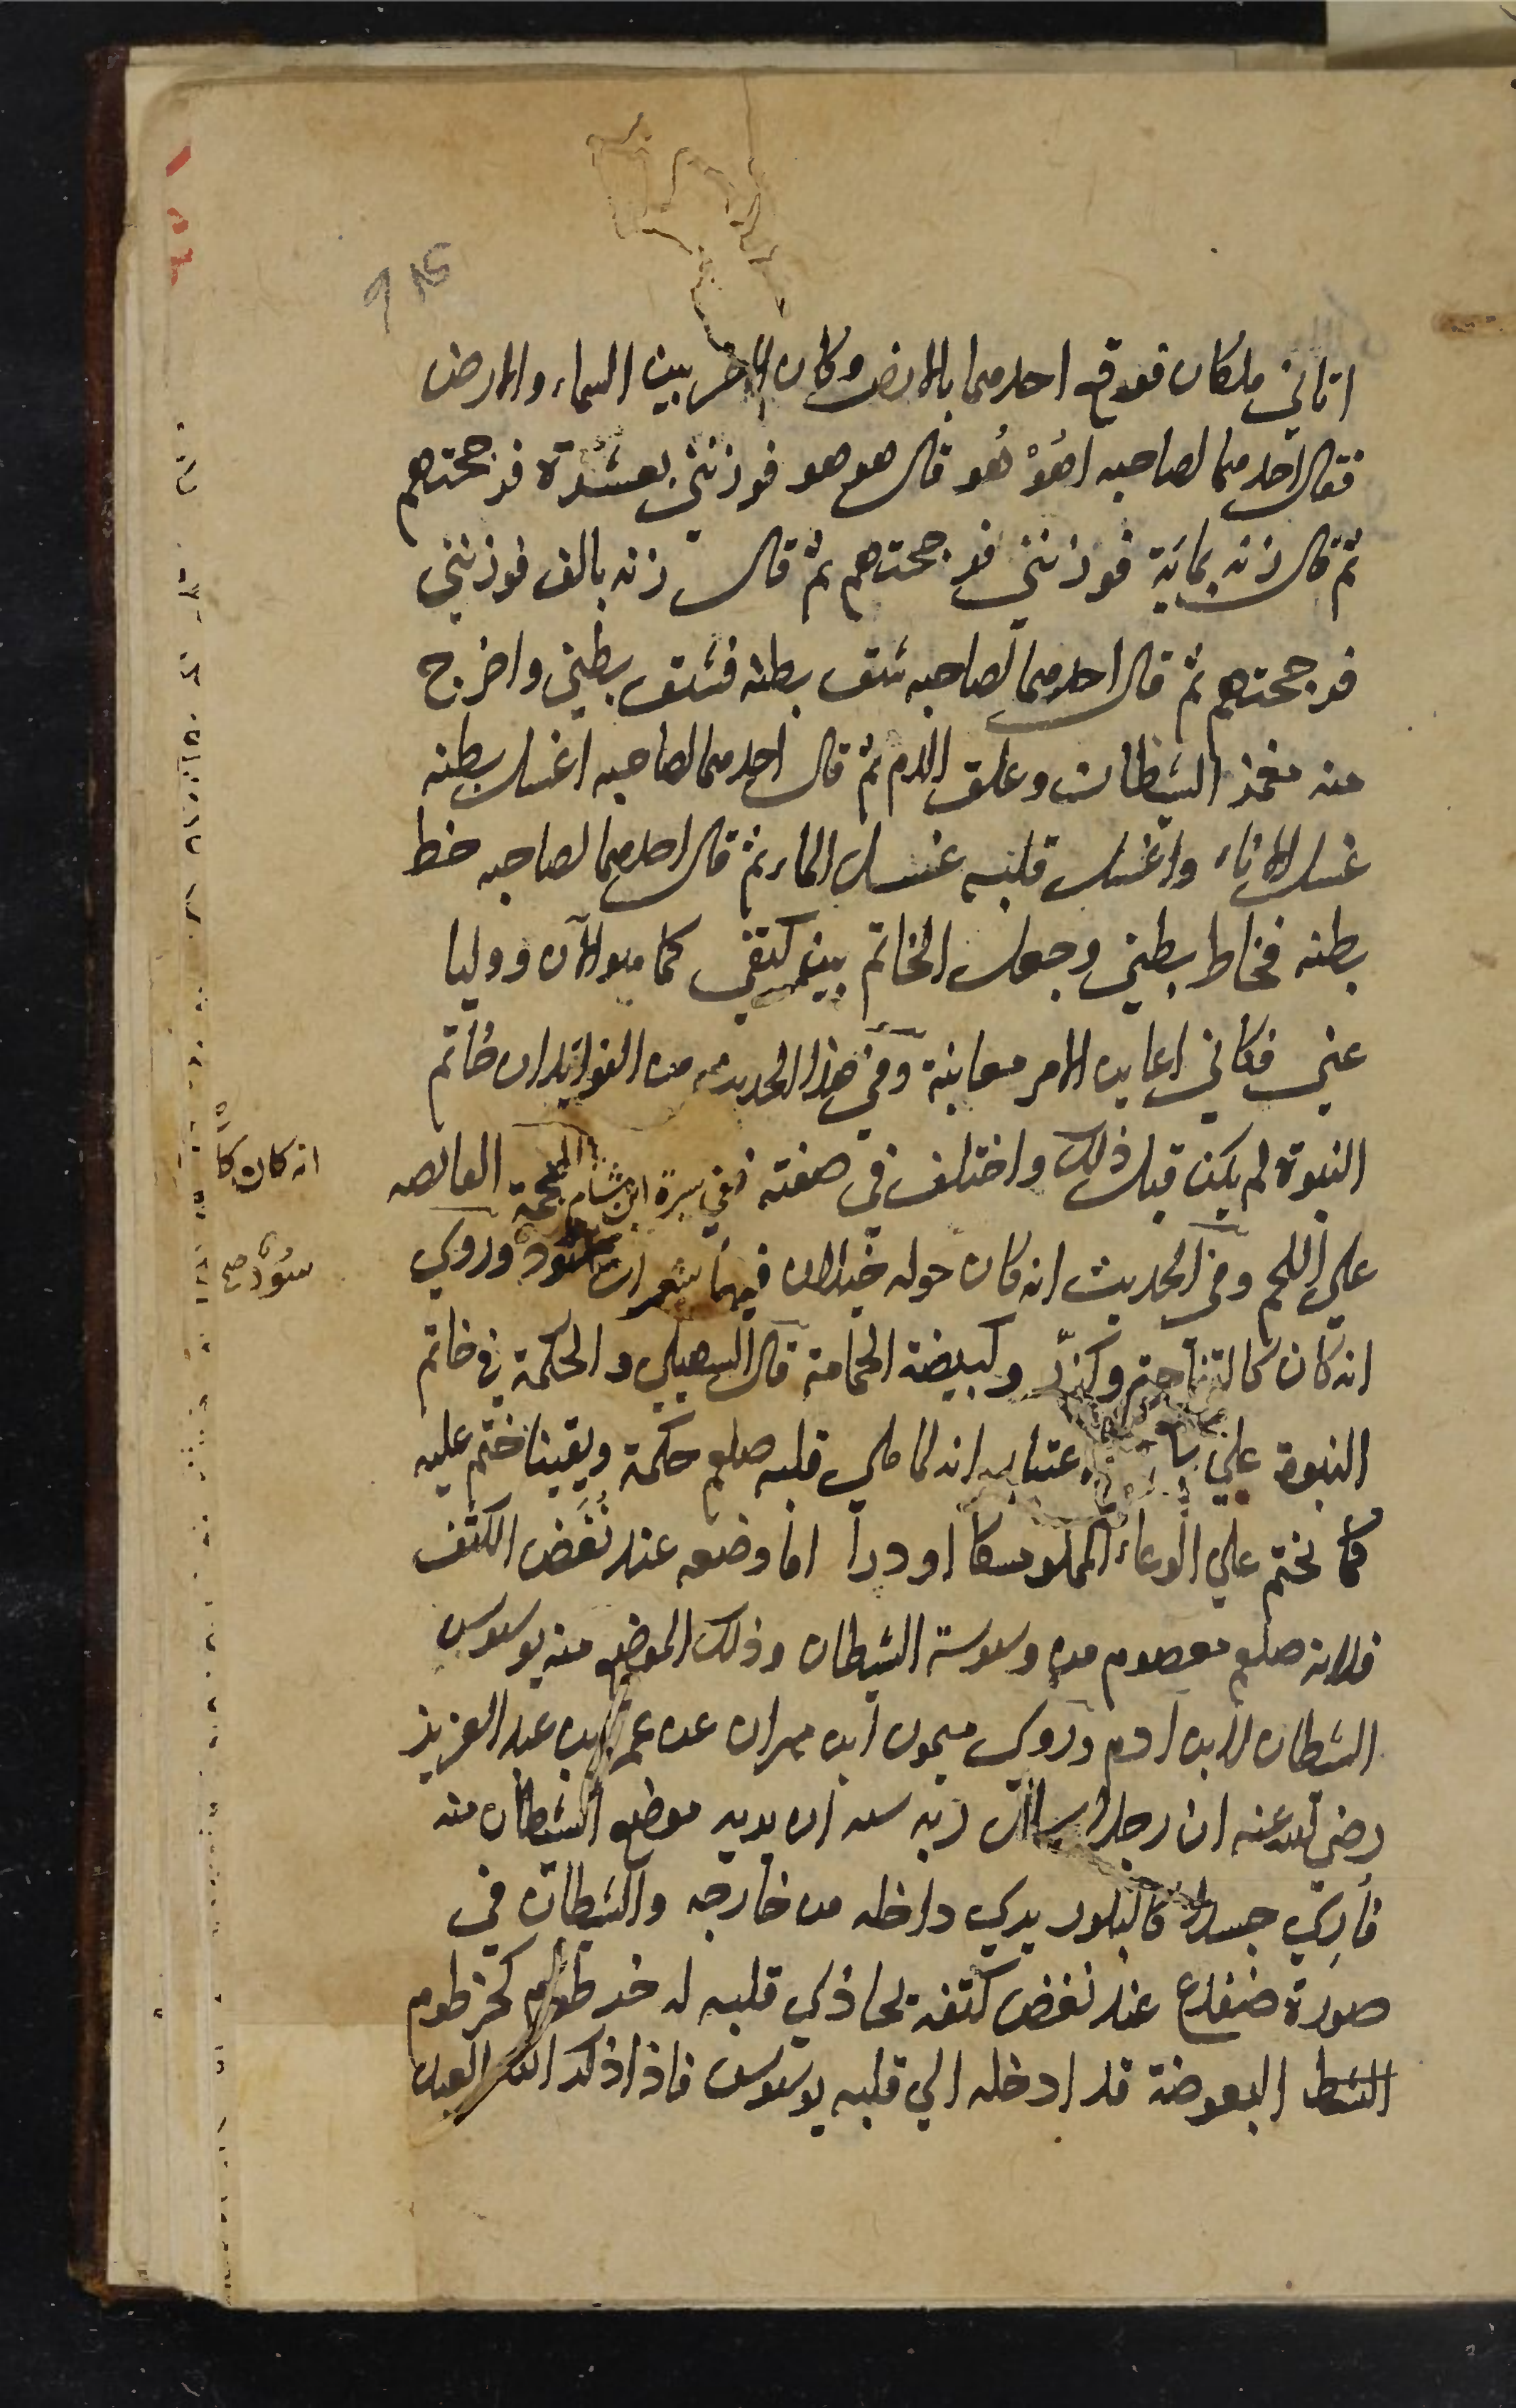 اتاني ملكان فوقع احدهما بالارض وكان الاخر بين السماء والارض
فقال احدهما لصاحبه اهُوْ هُو قال هو هو فوزنني بعشرة فرجحتهم
ثم قال زنه بماية فوزنني فرجحتهم ثم قال زنه بالف فوزنني
فرجحتهم ثم قال احدهما لصاحبه شق بطنه فشق بطني واخرج
منه مغمز الشيطان وعلق الدم ثم قال احدهما لصاحبه اغسل بطنه
غسل الاناء واغسل قلبه غسل الماء ثم قال احدهما لصاحبه خط
بطنه فخاط بطني وجعل الخاتم بين كتفي كما هو الآن ووليا
عني فكاني اعاين الامر معاينة وفي هذا الحديث من الفوايد ان خاتم
النبوة لم يكن قبل ذلك واختلف في صفته ففي سيرة ابن هشام
انه كان كا
على اللحم وفي الحديث انه كان حوله خيلان فيها شعرات سود وروي
سود صح
انه كان كالتفاحة وكزرّ وكبيضة الحمامة قال السهيلي والحكمة في خاتم
النبوة علي انه لما ملي قلبه صلعم حكمة ويقينا ختم عليه
كما نختم علي الوعاء المملو مسكا او درا اما وضعه عند نُغَض الكتف
فلانه صلعم معصوم من وسوسة الشيطان وذلك الموضع منه يوسوس
الشيطان لابن ادم وروي ميمون ابن مهران عن عمر بن عبد العزيز
رضي الله عنه ان رجلا سال ربه سنة ان يريه موضع الشيطان منه
فأري جسدا كالبلور يري داخله من خارجه والشيطان في
صورة ضفدع عند نغض كتفه يحاذي قلبه له خرطوم كخرطوم
البعوضة قد ادخله الي قلبه يوسوس فاذا ذكر الله العبد